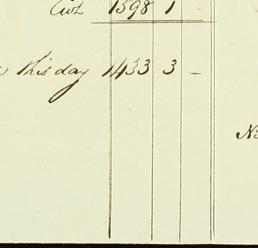 Cwt 1598 1
this day 1433 3 –